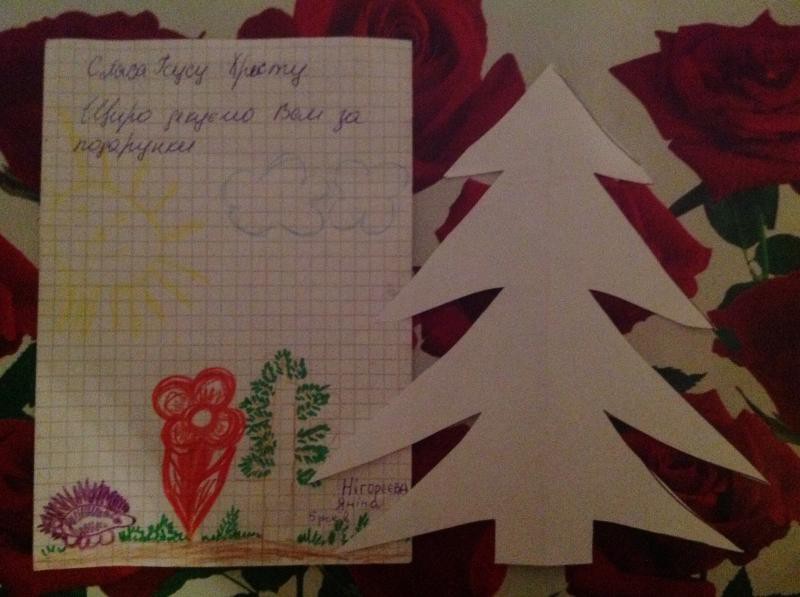 Слава Ісусу Христу
Щиро дякуємо Вам за
подарунки
Нігореєва
Яніна